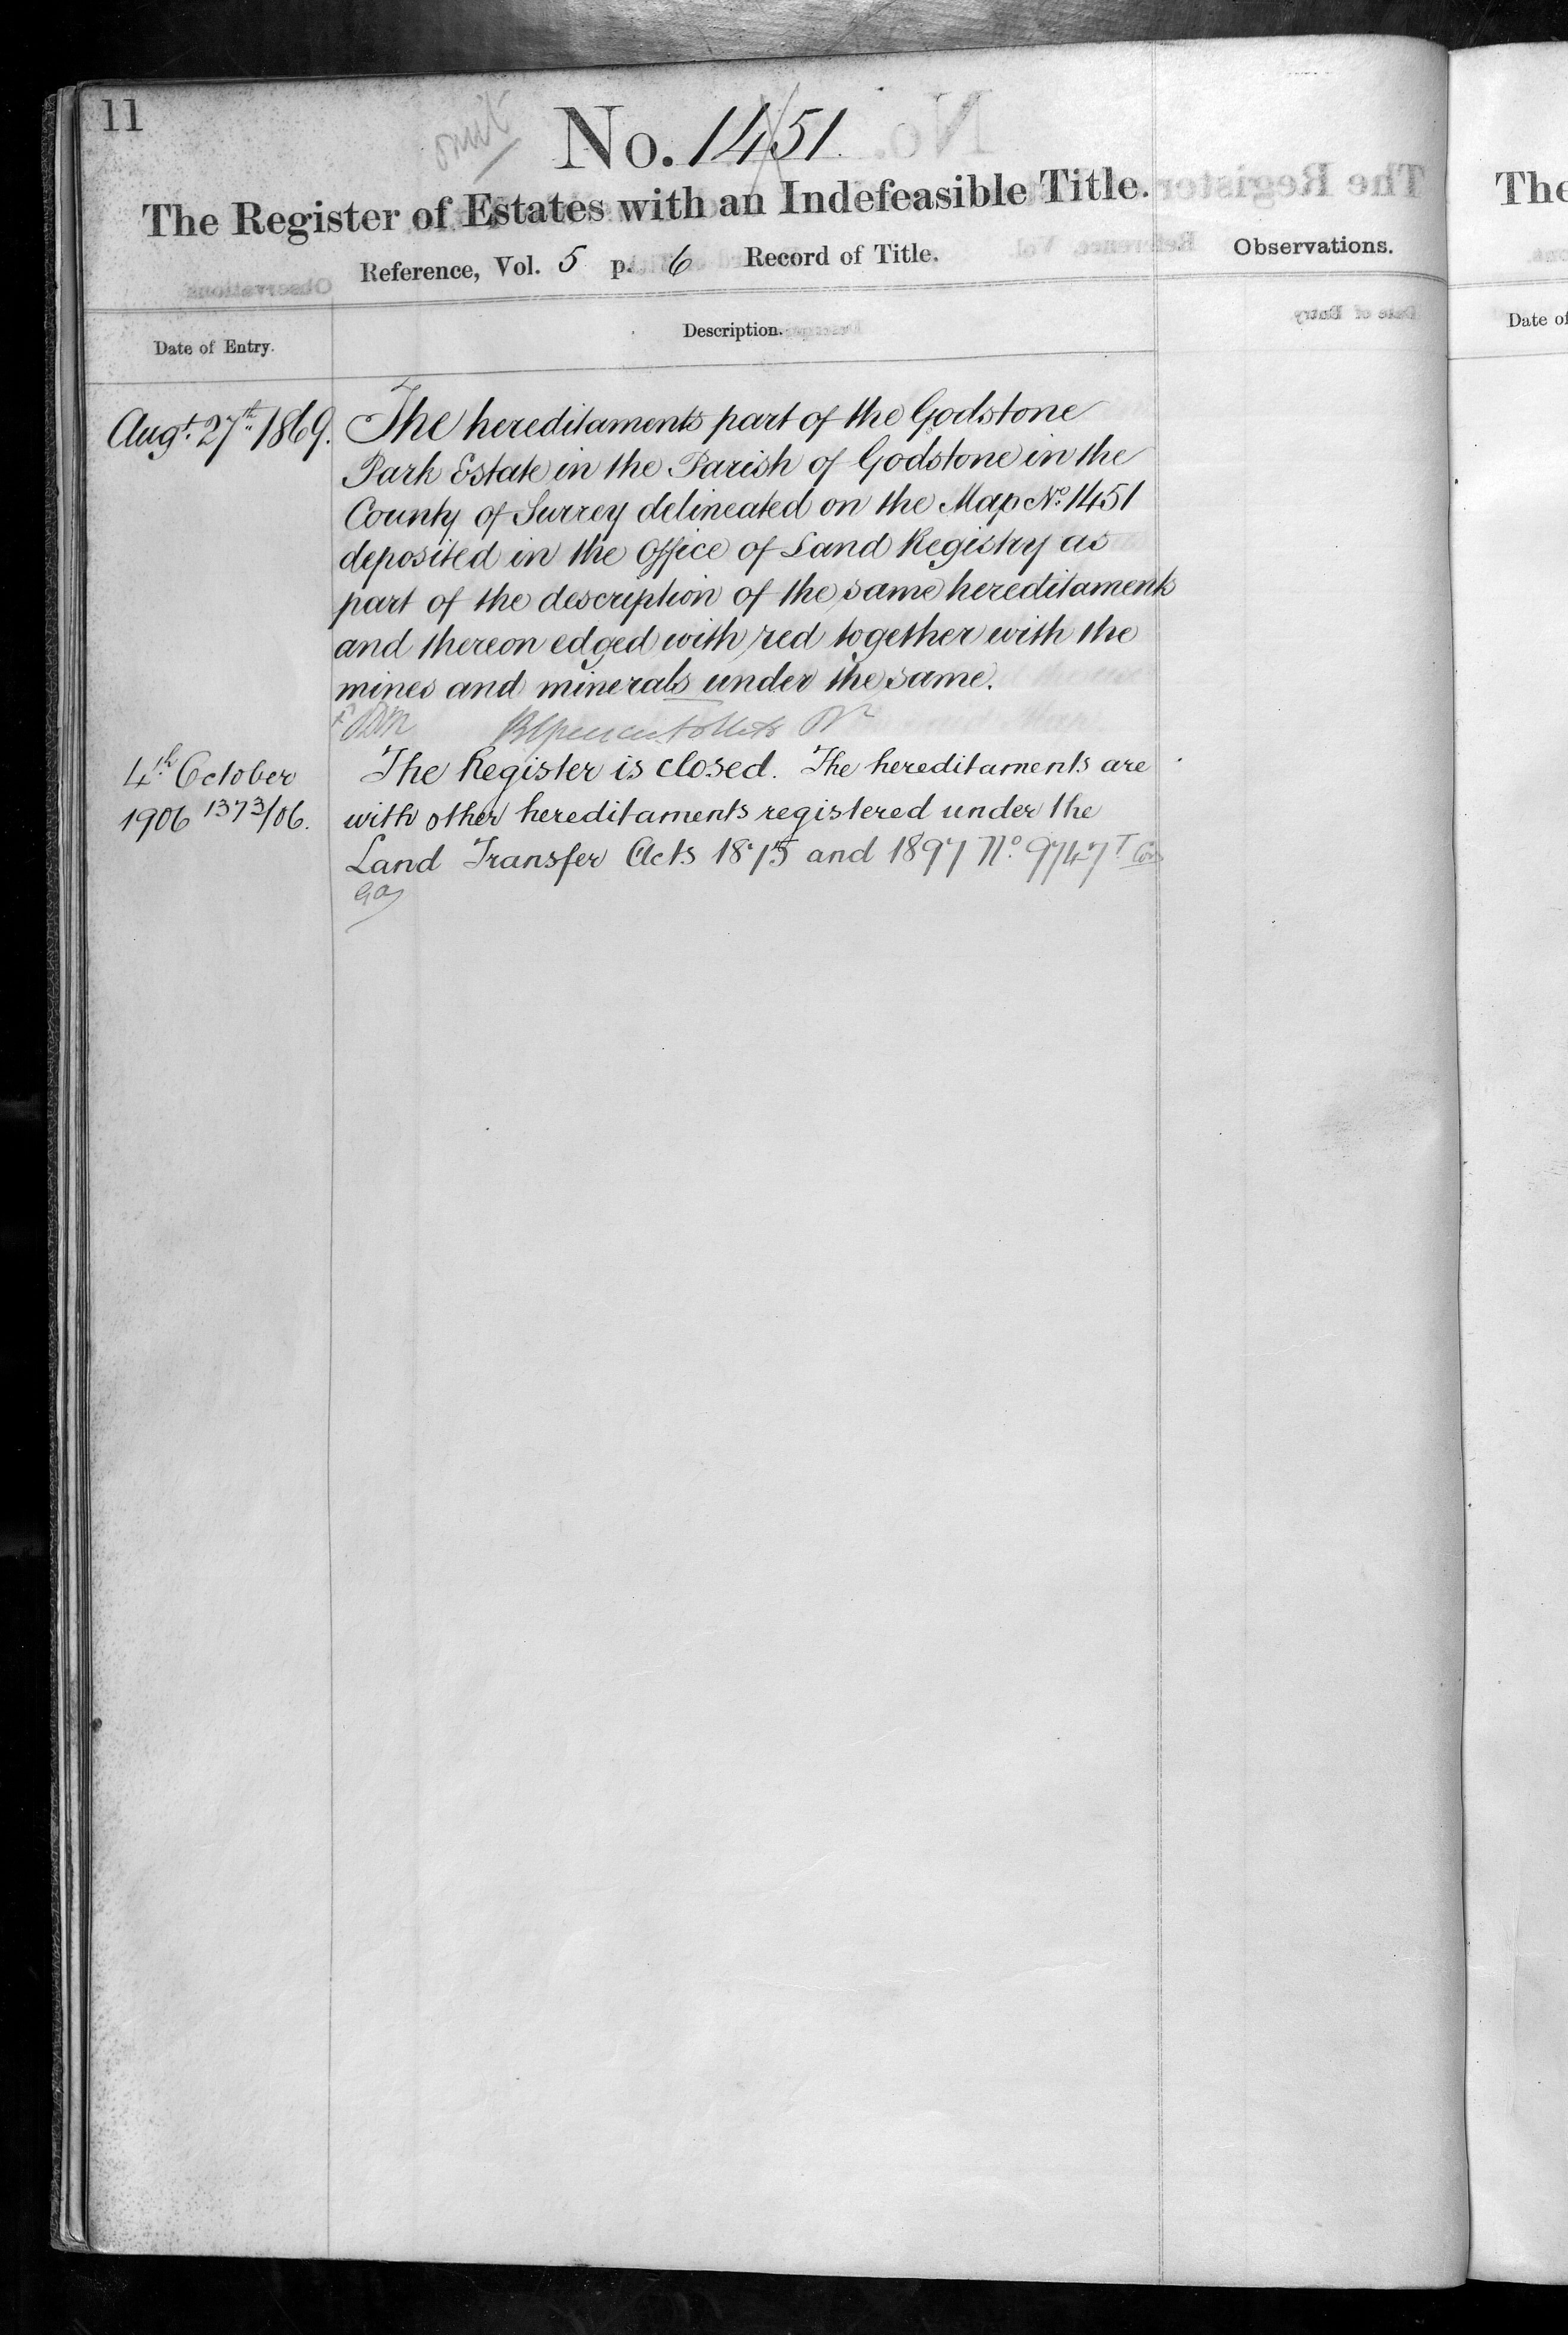 11
omit
No. 1451.
The Register of Estates with an Indefeasible Title.
Reference, Vol. 5 p. 6 Record of Title.
Observations.
Date of Entry.
Description.
Augt. 27th 1869. The hereditaments part of the Godstone
Park Estate in the Parish of Godstone in the
County of Surrey delineated on the Map No. 1451
deposited in the Office of Land Registry as
part of the description of the same hereditaments
and thereon edged with red together with the
mines and minerals under the same.
4th October The Register is closed. The hereditaments are
1906 1373/06. with other hereditaments registered under the
Land Transfer Acts 1875 and 1897 No. 9747
The
Date of